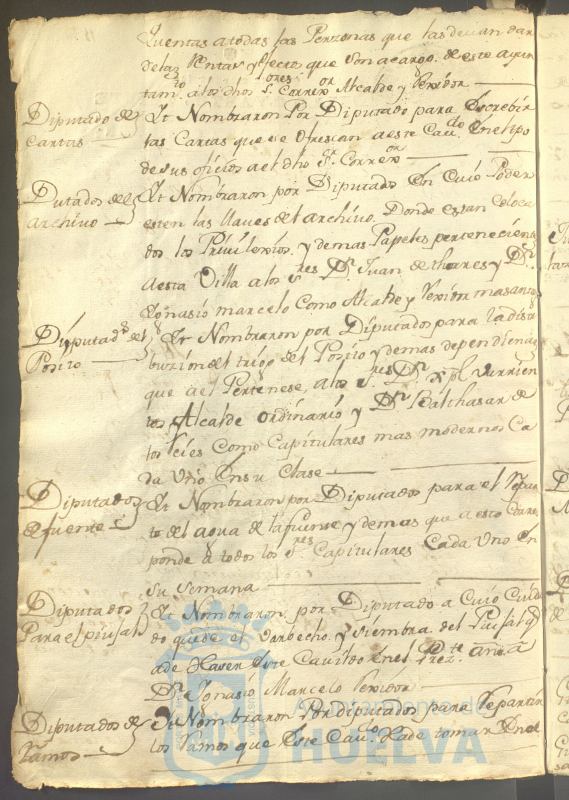 Quentas a todas las Personas que las devan dar
de las Rentas y efectos que son a cargo de este ayun
tam.to a los dhos S.ores Correx.or Alcalde y Rexidor
Diputado de
Cartas
Yt Nombraron Por Diputado para Escrebir
las Cartas que se ofrescan a este Cav.do En el tpo
de sus oficios a el dho S.r Correx.or
Dutados del
Archivo
Yt Nombraron por Diputados En Cuio Poder
esten las llaves del archivo. Donde estan
los Privilexios y demas Papeles pertenecien
a esta Villa a los S.res D.n Juan de thorres y D.n
Ygnasio marcelo Como Alcalde y Rexidor mas
Diputad.s del
Posito
Yt Nombraron por Diputados para la distri
buzion del trigo del Posito y demas dependiencias
que a el Pertenese, a los S.res D.n
Alcalde ordinario y D.n Balthasar de
Como Capitulares mas modernos Ca
da Uno En su Clase
Diputados
de fuente
Yt Nombraron por Diputados para el
del agua de la fuente y demas que a esto Corres
ponde a todos los S.res Capitulares Cada Uno En
su semana
Diputados
Para el piujal
Yt Nombraron por Diputado a Cuio Cuida
do quede el barbecho y siembra del Piujal q
a de Haser Este Cavildo En el Prez.te año a
D.n Ygnasio Marcelo Rexidor
Diputados de
Ramos
Yt Nombraron Por diputados para Repartir
los Ramos que Este Cav.do Hade tomar En el
Ayuntamiento de
HUELVA